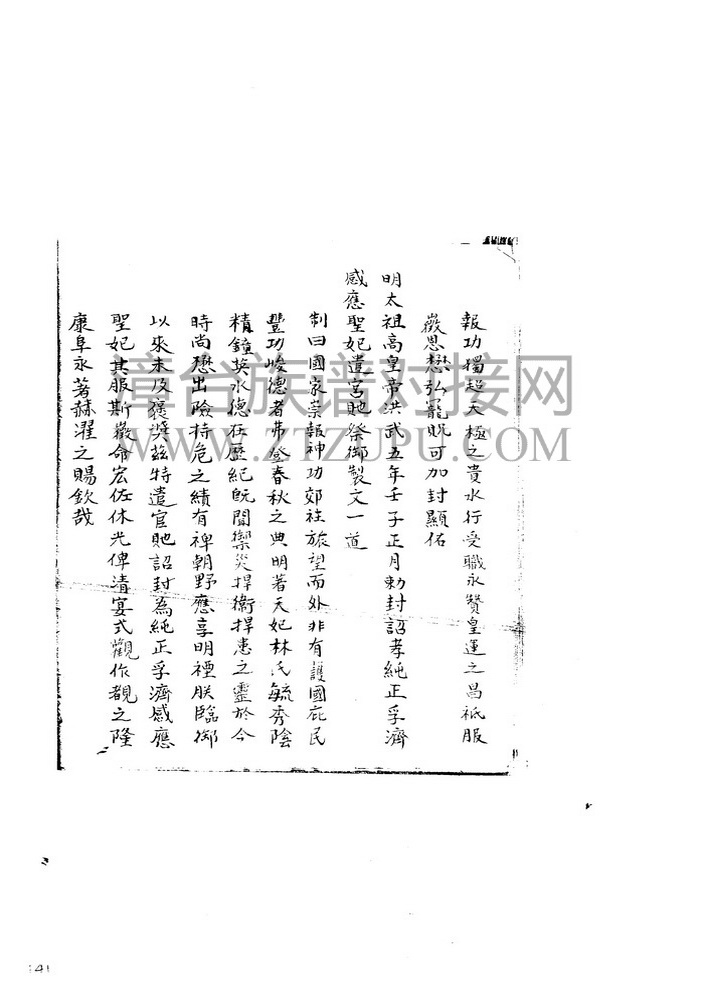 報功獨超天極之貴水行受職永贊皇運之昌祗服
嶶恩懋弘寵貺可加封顯佑
明太祖高皇帝洪武五年壬子正月勅封詔孝純正孚濟
感應聖妃遣官貤祭御製文一道
制曰國家崇報神功郊社旅望而外非有護國庇民
豐功峻德者弗登春秋之典明著天妃林氏毓秀陰
精鐘英水德在歷紀既聞禦災捍衞捍患之靈於今
時尚懋出險持危之績有裨朝野應享明禋朕臨御
以來未及褒獎茲特遣官貤詔封為純正孚濟感應
聖妃其服斯嶶命宏佐休光俾清宴式觀作覩之隆
康阜永著赫濯之賜欽哉
漳台族谱对接网
WWW.ZTZUPU.COM
141